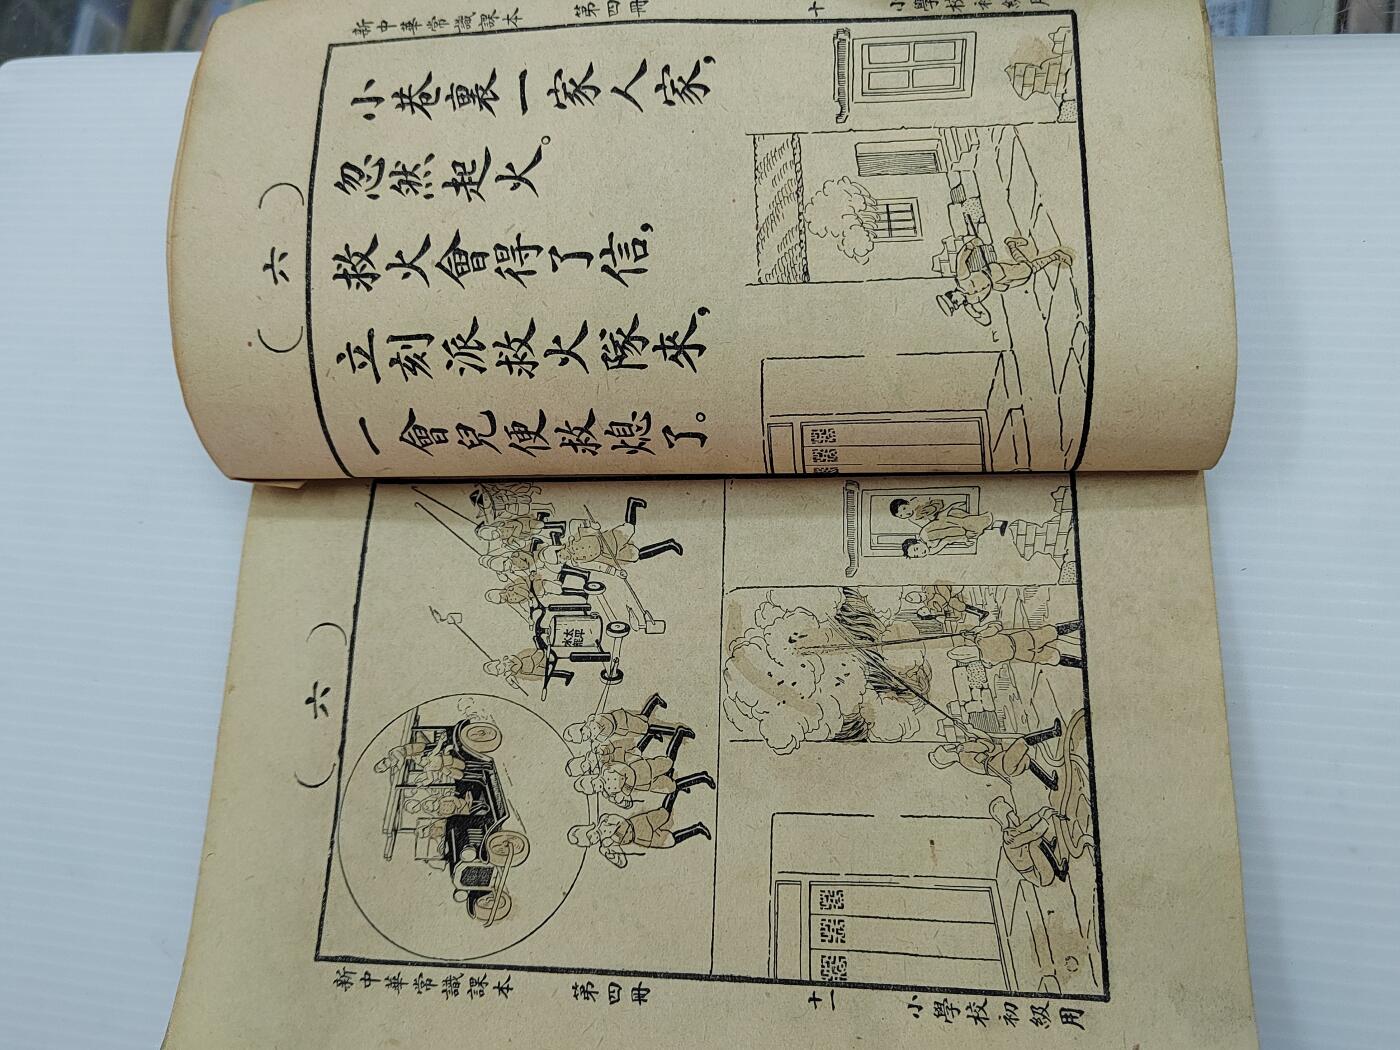 新中華常識課本 第四冊 十 小學校初級用
（六）
小巷裏一家人家，
忽然起火。
救火會得了信，
立刻派救火隊來，
一會兒便救熄了。
（六）
太平
水龍
新中華常識課本 第四冊 十一 小學校初級用